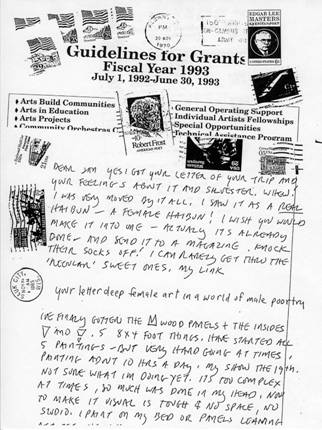 PM
20 NOV
1990
EDGAR LEE
MASTERS
AMERICAN POET
Guidelines for Grants
Fiscal Year 1993
July 1, 1992-June 30, 1993
♦ Arts Build Communities
♦ Arts in Education
♦ Arts Projects
♦ Community Orchestras
General Operating Support
Individual Artists Fellowships
Special Opportunities
Technical Assistance Program
Robert Frost
AMERICAN POET
DEAR JAM YES I GOT YOUR LETTER OF YOUR TRIP AND
YOUR FEELINGS ABOUT IT AND SILVESTER. WHEW!
I WAS VERY MOVED BY IT ALL. I SAW IT AS A REAL
HAIBUN – A FEMALE HAIBUN! I WISH YOU WOULD
MAKE IT INTO ONE – ACTUALLY IT'S ALREADY
DONE – AND SEND IT TO A MAGAZINE. KNOCK
THEIR SOCKS OFF! I CAN RARELY GET THRU THE
'REGULAR' SWEET ONES, MY LINK
your letter deep female art in a world of male poetry
I'VE FINALLY GOTTEN THE WOOD PANELS + THE INSIDES
AND . 5 8X4 FOOT THINGS. HAVE STARTED ALL
5 PAINTINGS – BUT VERY HARD GOING AT TIMES,
PAINTING ABOUT 10 HRS A DAY. MY SHOW THE 19TH.
NOT SURE WHAT I'M DOING YET. IT'S TOO COMPLEX
AT TIMES, SO MUCH WAS DONE IN MY HEAD, NOW
TO MAKE IT VISUAL IS TOUGH & NO SPACE, NO
STUDIO. I PAINT ON MY BED OR PANELS LEANING